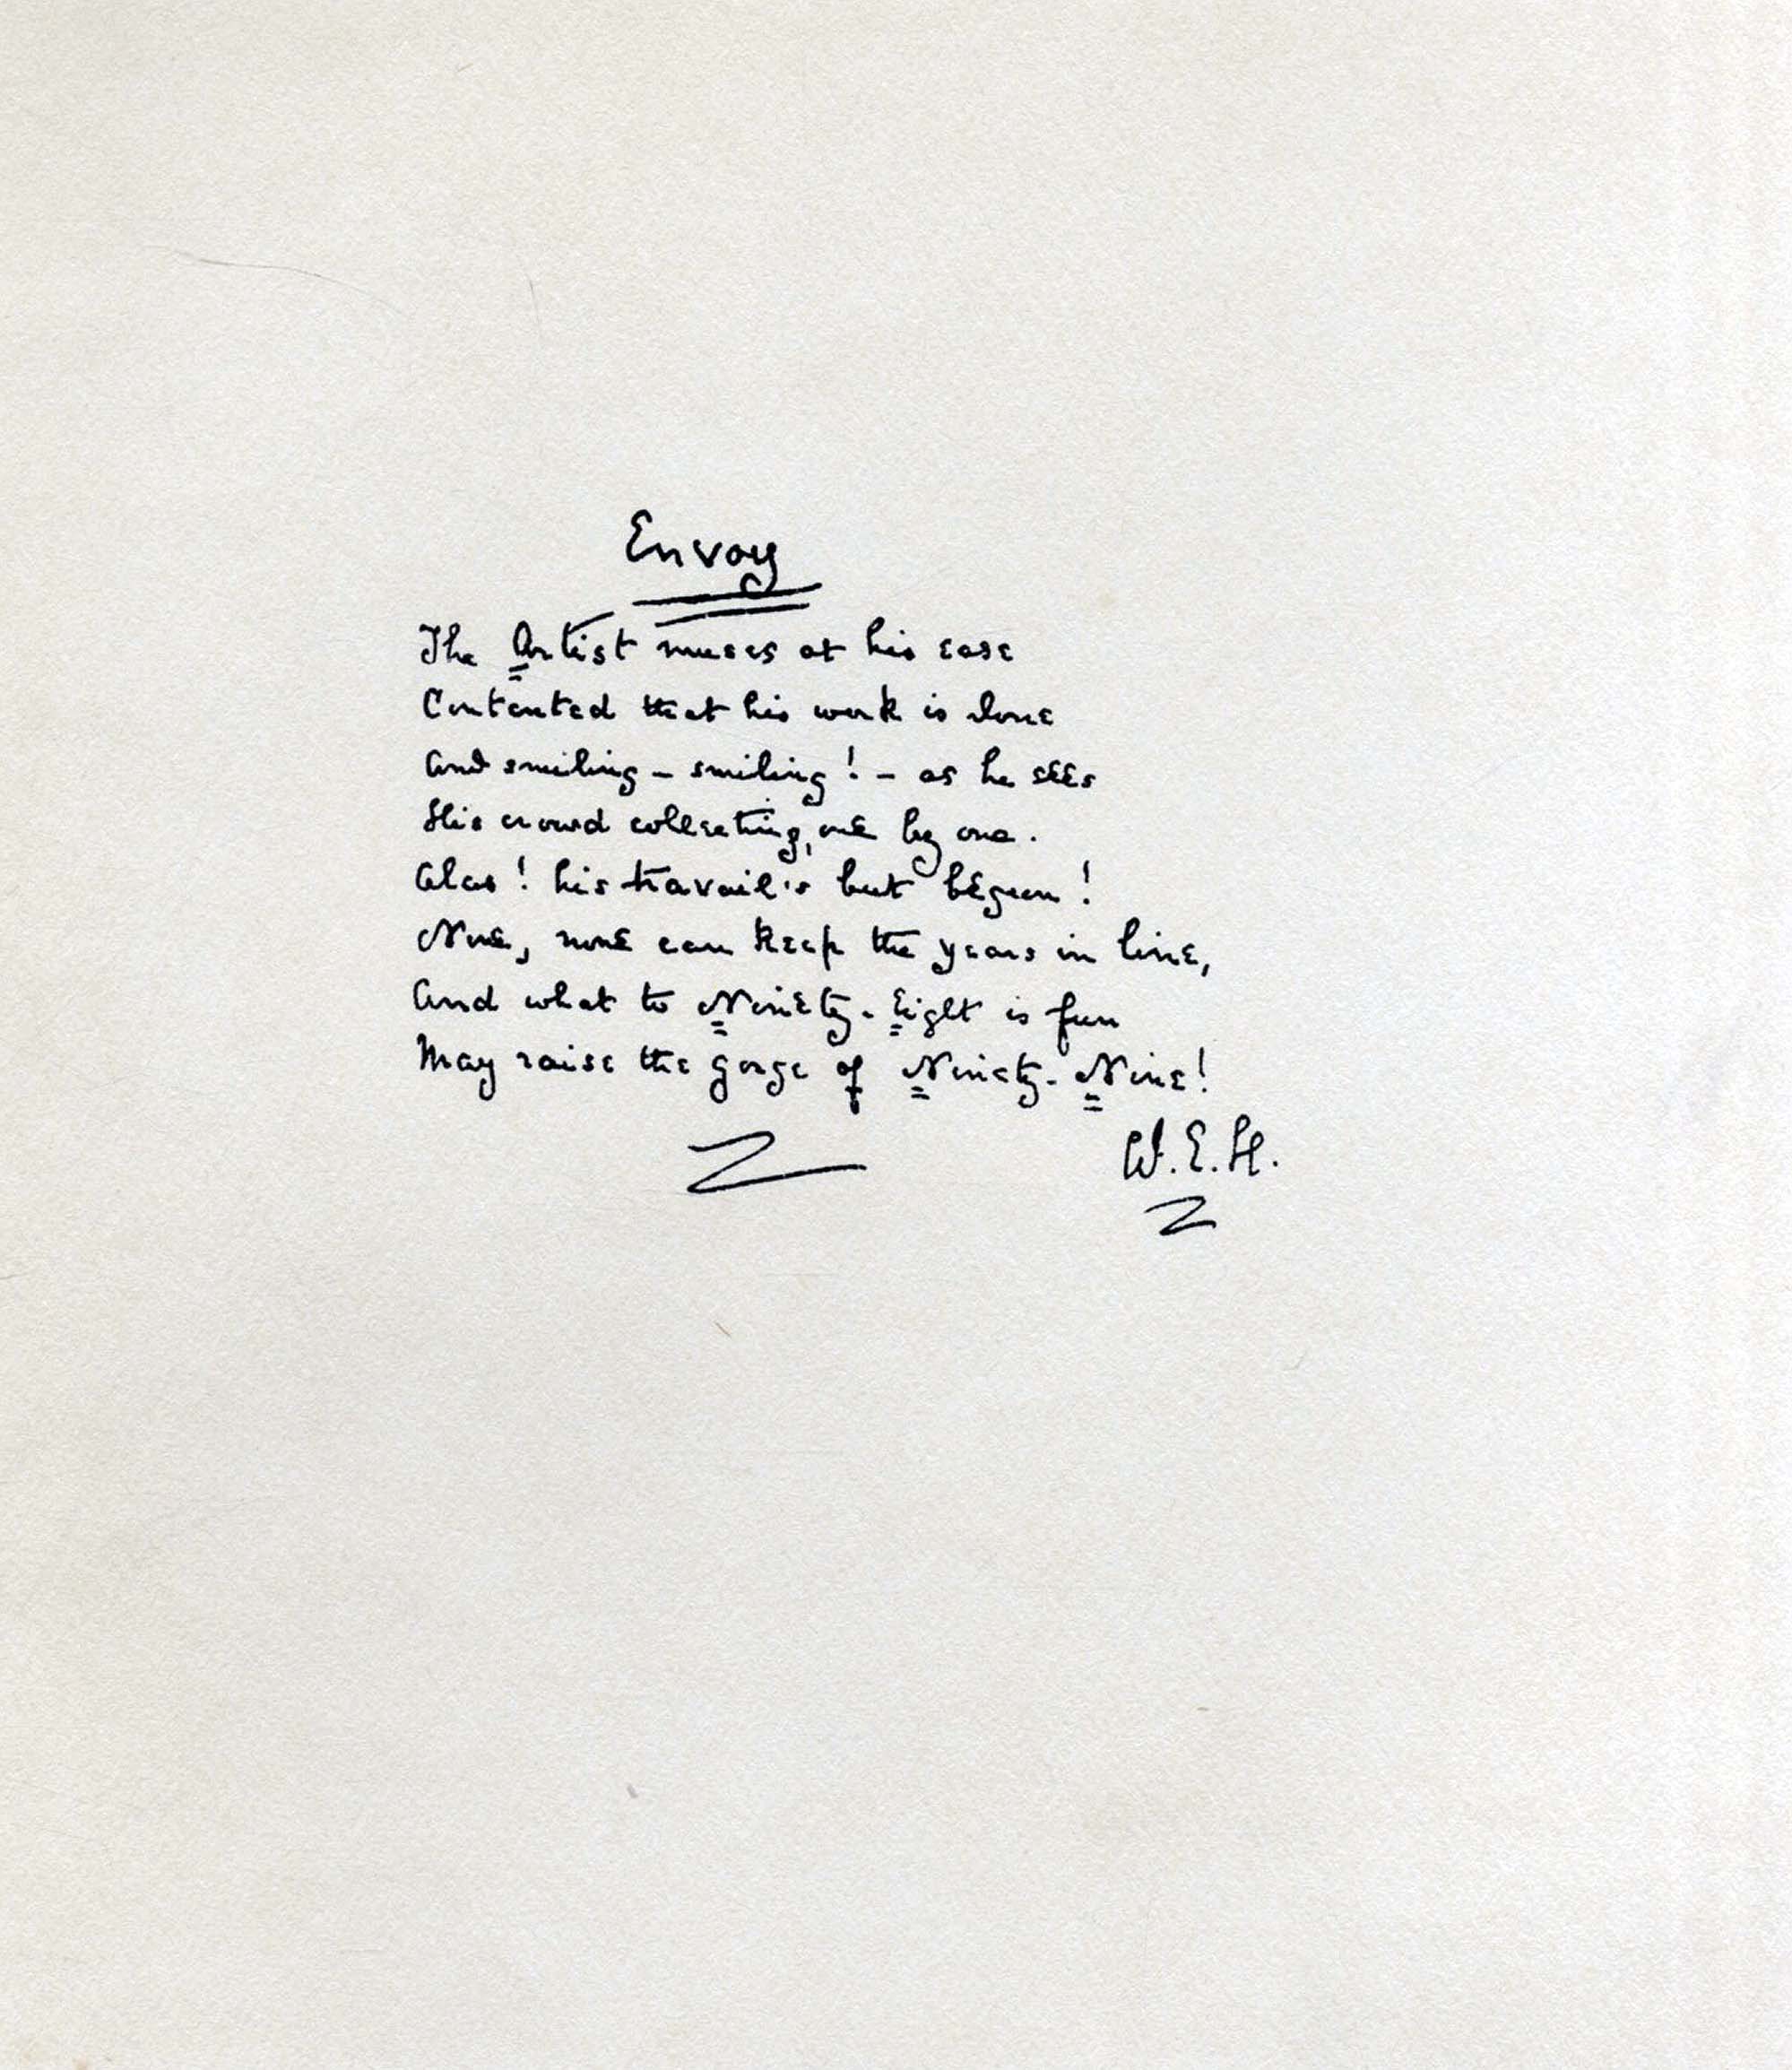 Envoy
The Artist muses at his ease
Contented that his work is done
And smiling – smiling! – as he sees
His crowd collecting, one by one.
Alas! his travail's but begun!
None, none can keep the years in line,
And what to Ninety-Eight is fun
May raise the gorge of Ninety-Nine!
W.E.H.